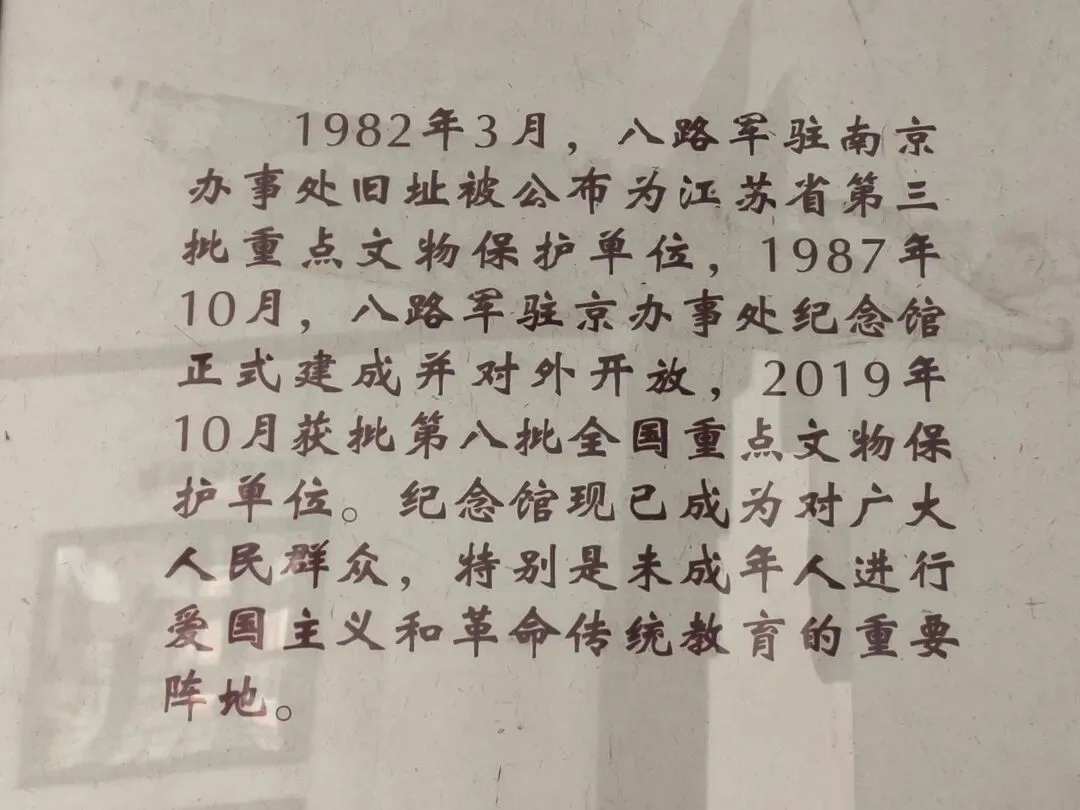 1982年3月，八路军驻南京
办事处旧址被公布为江苏省第三
批重点文物保护单位，1987年
10月，八路军驻京办事处纪念馆
正式建成并对外开放，2019年
10月获批第八批全国重点文物保
护单位。纪念馆现已成为对广大
人民群众，特别是未成年人进行
爱国主义和革命传统教育的重要
阵地。